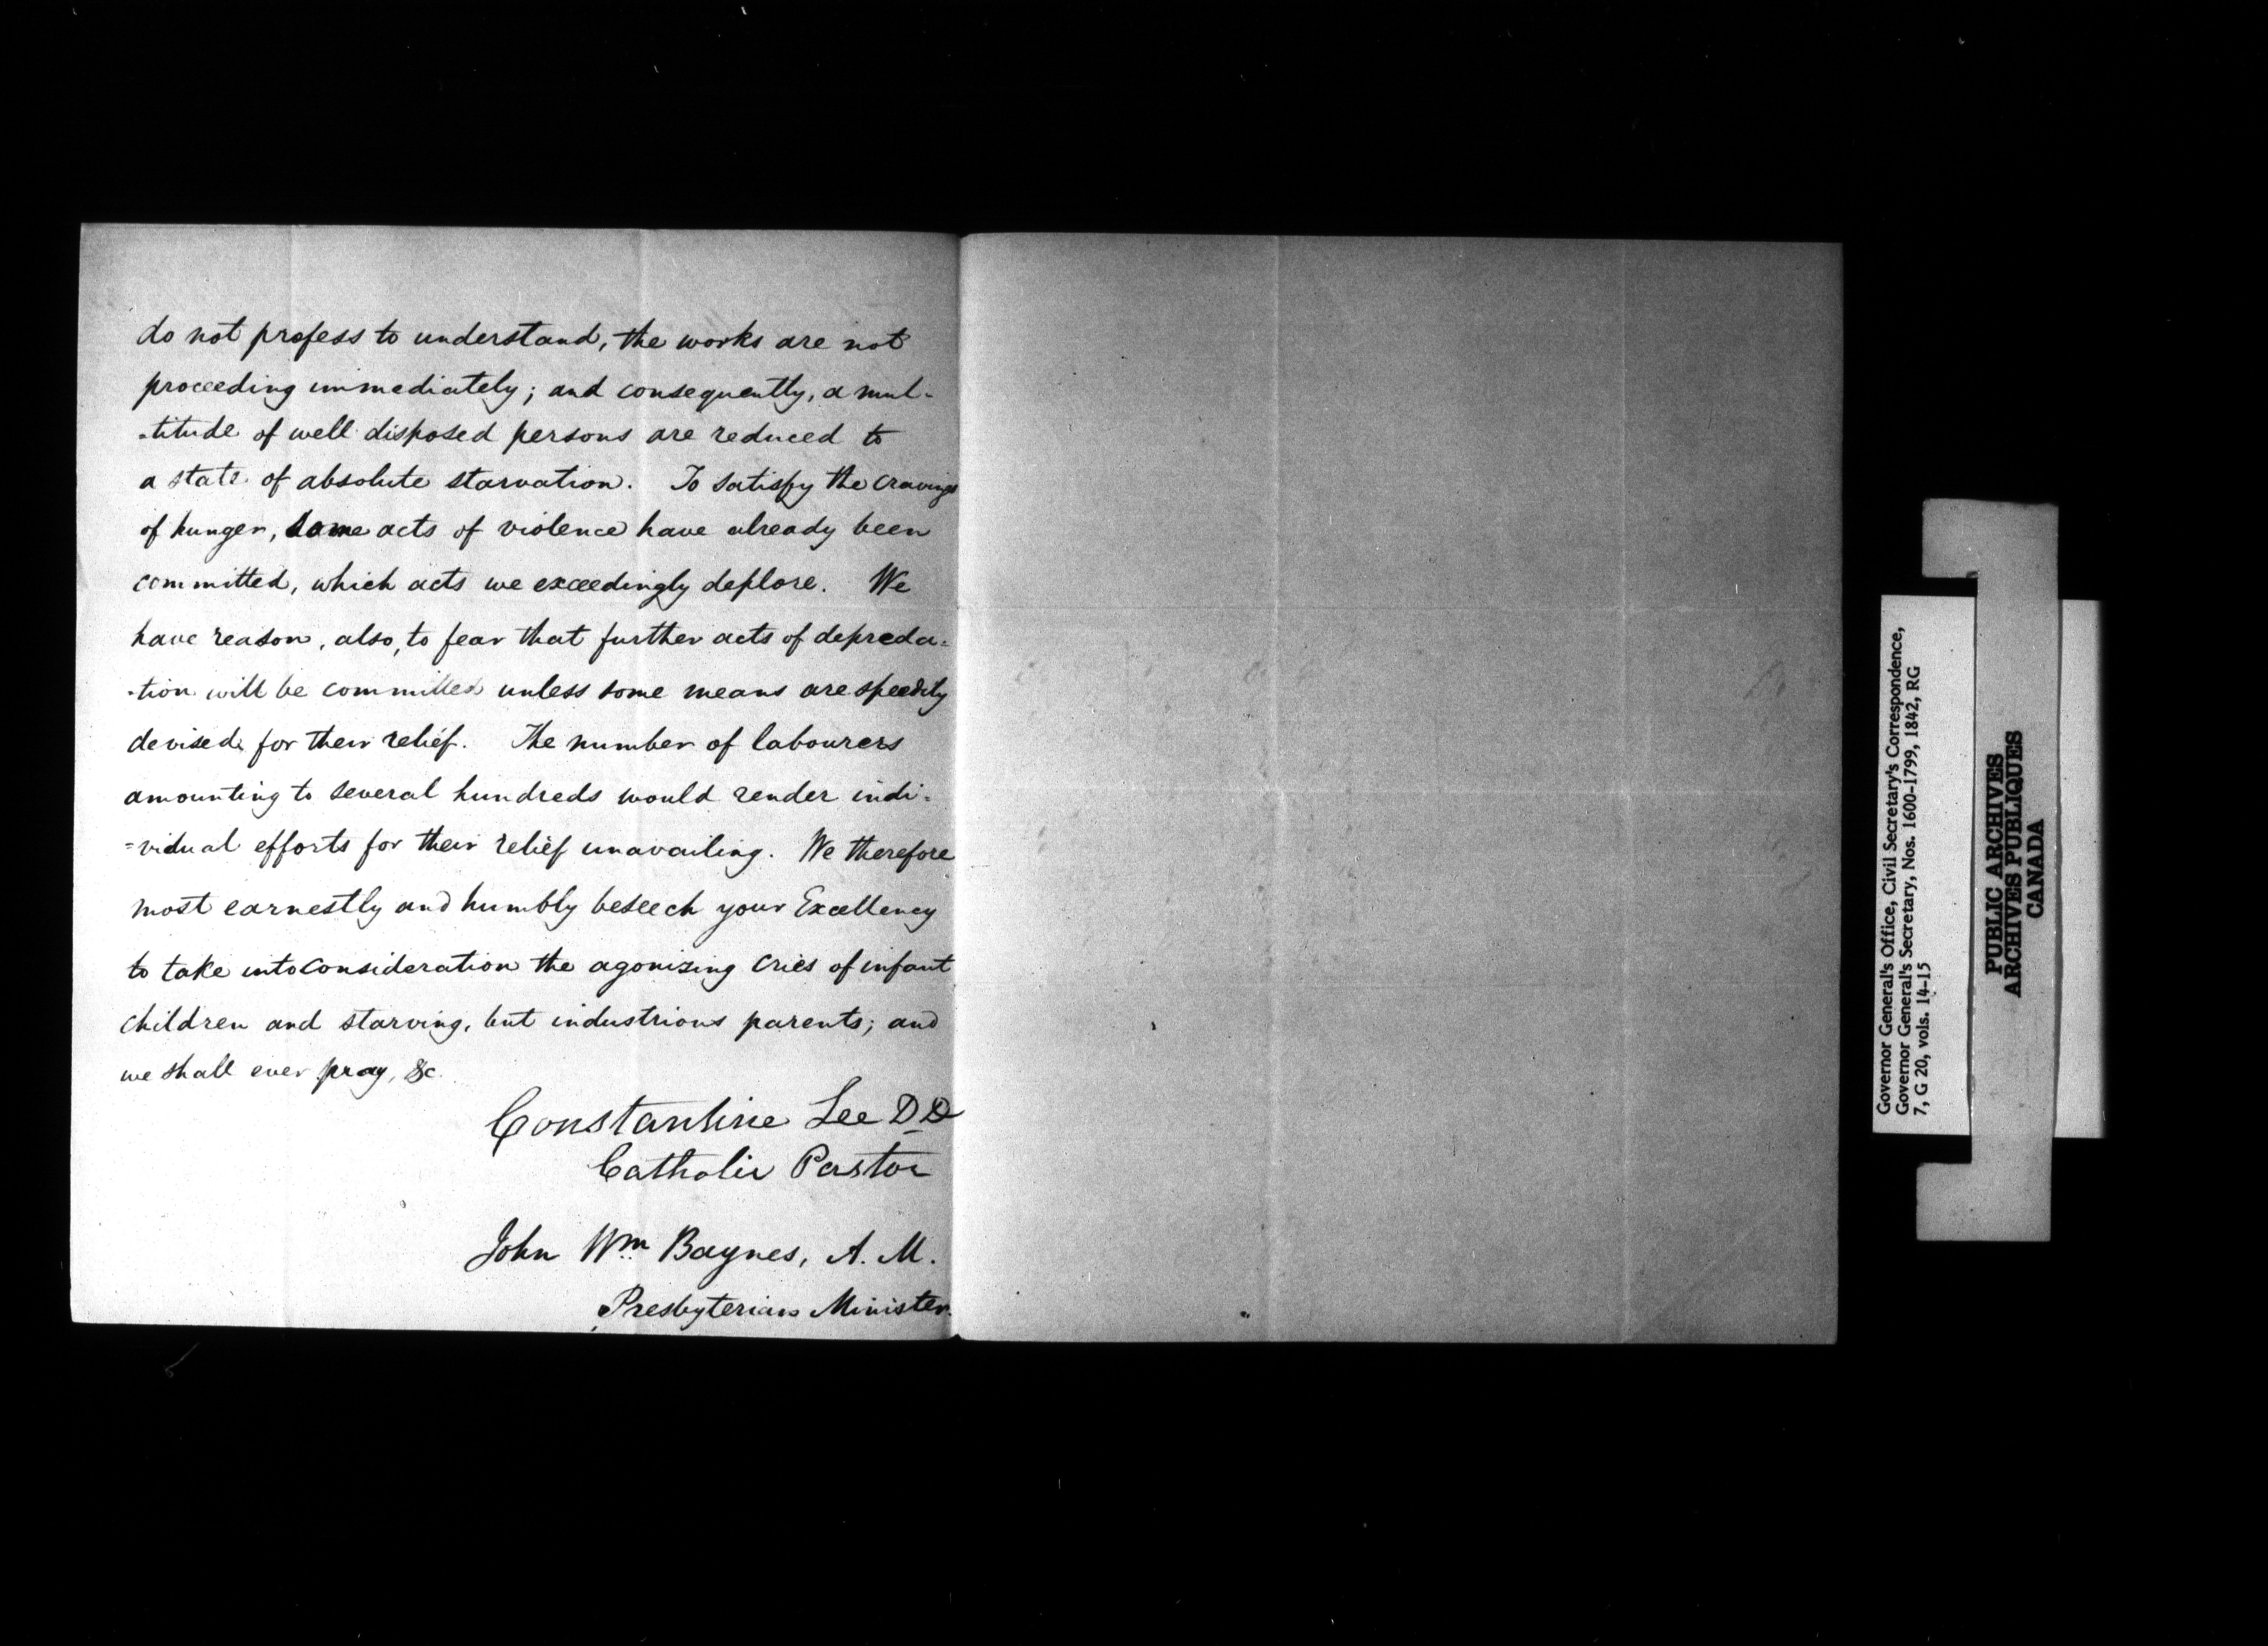 do not profess to understand, the works are not
proceeding immediately; and consequently, a mul-
-titude of well disposed persons are reduced to
a state of absolute starvation. To satisfy the cravings
of hunger, some acts of violence have already been
committed, which acts we exceedingly deplore. We
have reason, also, to fear that further acts of depreda=
-tion will be committed unless some means are speedily
devised for their relief. The number of labourers
amounting to several hundreds would render indi=
=vidual efforts for their relief unavailing. We therefore
most earnestly and humbly beseech your Excellency
to take into consideration the agonizing cries of infant
children and starving, but industrious parents; and
we shall ever pray, &c.
Constantine Lee DD
Catholic Pastor
John Wm Baynes, A. M.
Presbyterian Minister.
Governor General's Office, Civil Secretary's Correspondence,
Governor General's Secretary, Nos. 1600-1799, 1842, RG
7, G 20, vols. 14-15
PUBLIC ARCHIVES
ARCHIVES PUBLIQUES
CANADA